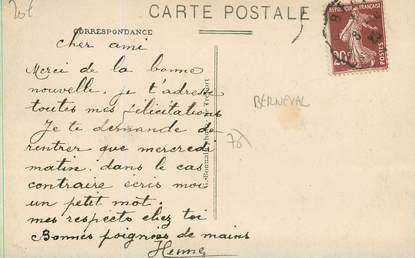 20€
CARTE POSTALE
CORRESPONDANCE
cher ami
Merci de la bonne
nouvelle. je t'adresse
toutes mes félicitations
Je te demande de
rentrer que mercredi
matin. dans le cas
contraire écris moi
un petit mot.
mes respects chez toi
Bonnes poignées de mains
BERNEVAL
76
POSTES